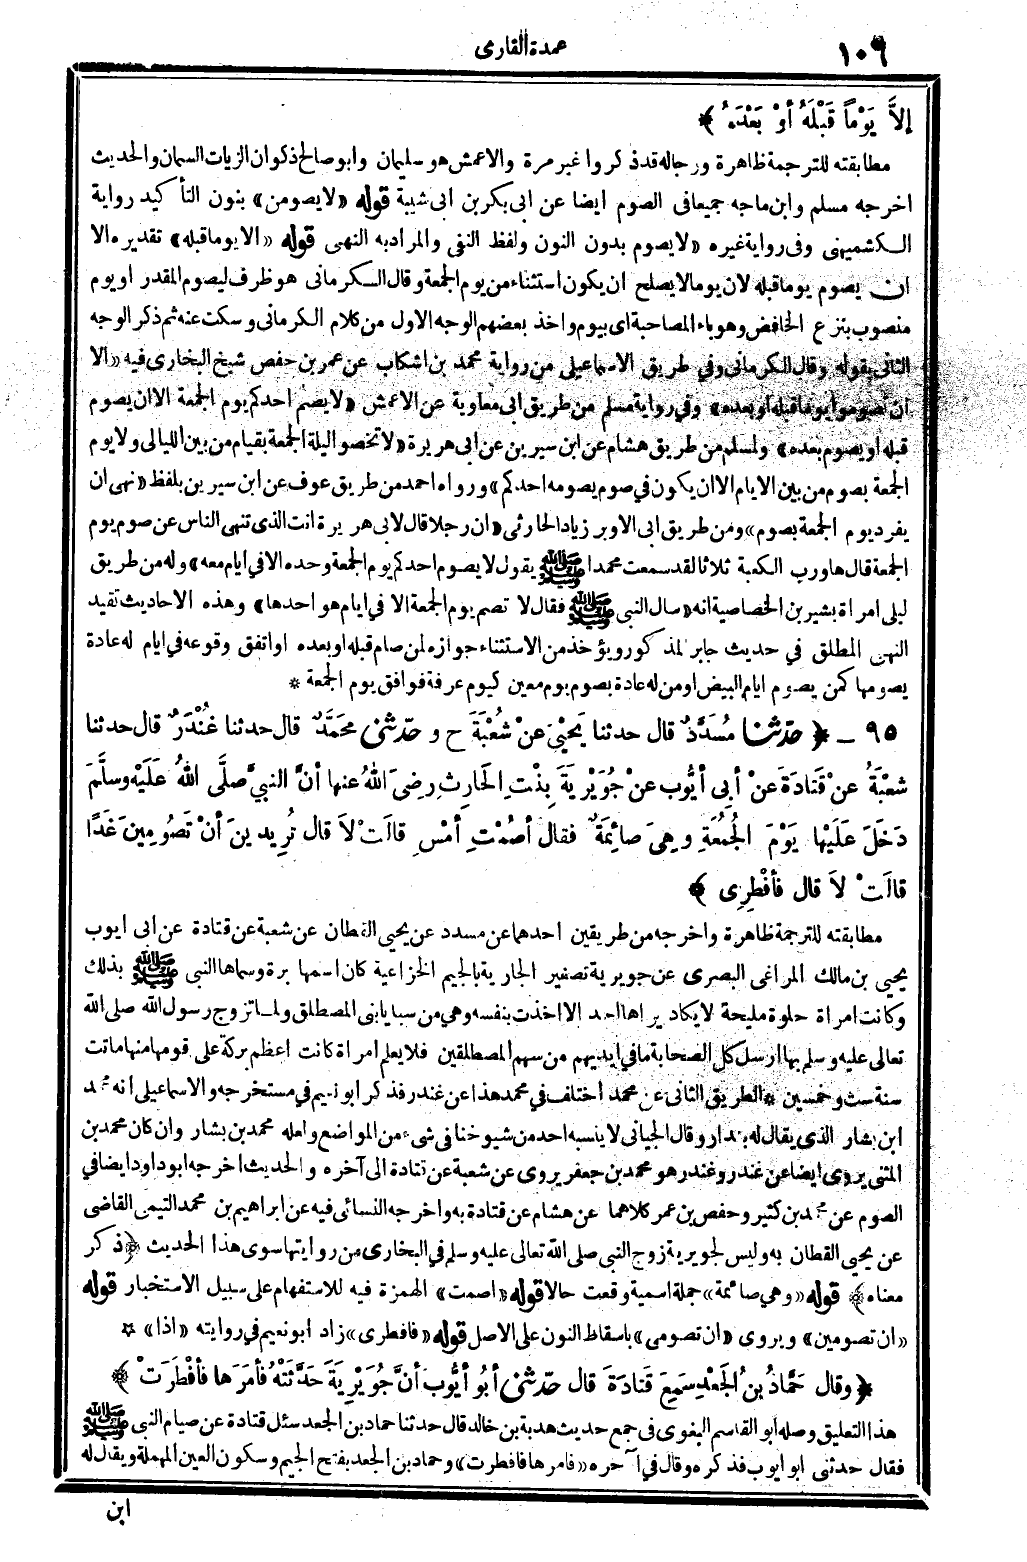 ١٠٩
عمدة القارى
إلاَّ يَوْماً قَبْلَهُ أوْ بَعْدَهُ ﴾
مطابقته للترجمة ظاهرة ورجاله قد ذكروا غير مرة والاعمش هو سليمان وابو صالح ذكوان الزيات السمان والحديث
اخرجه مسلم وابن ماجه جميعا فى الصوم ايضا عن ابى بكر بن ابى شيبة قوله «لا يصومن» بنون التأكيد رواية
الكشميهنى وفى رواية غيره «لا يصوم بدون النون ولفظ النفى والمراد به النهى قوله «الا يوما قبله» تقديره الا
ان يصوم يوما قبله لان يوما لا يصلح ان يكون استثناء من يوم الجمعة وقال الكرمانى هو ظرف ليصوم المقدر او يوم
منصوب بنزع الخافض وهو باء المصاحبة اى بيوم واخذ بعضهم الوجه الاول من كلام الكرمانى وسكت عنه ثم ذكر الوجه
الثانى بقوله وقال الكرمانى وفي طريق الاسماعيلى من رواية محمد بن اشكاب عن عمر بن حفص شيخ البخارى فيه «الا
ان تصوموا يوما قبله او بعده» وفي رواية مسلم من طريق ابى معاوية عن الاعمش «لا يصم احدكم يوم الجمعة الا ان يصوم
قبله او يصوم بعده» ولمسلم من طريق هشام عن ابن سيرين عن ابى هريرة «لا تخصوا ليلة الجمعة بقيام من بين الليالى ولا يوم
الجمعة بصوم من بين الايام الا ان يكون في صوم يصومه احدكم» ورواه احمد من طريق عوف عن ابن سيرين بلفظ «نهى ان
يفرد يوم الجمعة بصوم» ومن طريق ابى الاوبر زياد الحارثى «ان رجلا قال لابى هريرة انت الذى تنهى الناس عن صوم يوم
الجمعة قال ها ورب الكعبة ثلاثا لقد سمعت محمدا ﷺ يقول لا يصوم احدكم يوم الجمعة وحده الا في ايام معه» وله من طريق
ليلى امراة بشير بن الخصاصية انه «سال النبى ﷺ فقال لا تصم يوم الجمعة الا في ايام هو احدها» وهذه الاحاديث تقيد
النهى المطلق في حديث جابر المذكور ويؤخذ من الاستثناء جوازه لمن صام قبله او بعده او اتفق وقوعه في ايام له عادة
يصومها كمن يصوم ايام البيض او من له عادة بصوم يوم معين كيوم عرفة فوافق يوم الجمعة *
٩٥ ـ ﴿ حدّثنا مُسَدَّدٌ قال حدثنا يَحْيىَ عنْ شُعْبَةَ ح و حدّثني محَمَّدٌ قال حدثنا غُنْدَرٌ قال حدثنا
شعْبَةُ عنْ قَتادَةَ عَنْ أبى أيُّوب عنْ جُوَيْرِيَةَ بِنْتِ الحَارِثِ رضِىَ اللهُ عنها أنَّ النبيَّ صلَّى اللهُ عَلَيْهِ وسلَّمَ
دَخَلَ عَلَيْها يَوْمَ الجُمُعَةِ وهِىَ صائِمَةٌ فقال أصُمْتِ أمْسِ قالَتْ لاَ قال تُرِيدِينَ أنْ تَصُومِينَ غَدًا
قالَتْ لاَ قال فأفْطِرِى ﴾
مطابقته للترجمة ظاهرة واخرجه من طريقين احدهما عن مسدد عن يحيى القطان عن شعبة عن قتادة عن ابى ايوب
يحيى بن مالك المراغى البصرى عن جويرية تصغير الجارية بالجيم الخزاعية كان اسمها برة وسماها النبى ﷺ بذلك
وكانت امراة حلوة مليحة لا يكاد يراها احد الا اخذت بنفسه وهي من سبايا بنى المصطلق ولما تزوج رسول الله صلى الله
تعالى عليه وسلم بها ارسل كل الصحابة ما في ايديهم من سهم المصطلقين فلا يعلم امراة كانت اعظم بركة على قومها منها ماتت
سنة ست وخمسين * الطريق الثانى عن محمد اختلف في محمد هذا عن غندر فذكر ابو نعيم في مستخرجه والاسماعيلى انه محمد
ابن بشار الذى يقال له بندار وقال الجيانى لا ينسبه احد من شيوخنا في شىء من المواضع ولعله محمد بن بشار وان كان محمد بن
المثنى يروى ايضا عن غندر وغندر هو محمد بن جعفر يروى عن شعبة عن قتادة الى آخره والحديث اخرجه ابو داود ايضا في
الصوم عن محمد بن كثير وحفص بن عمر كلاهما عن هشام عن قتادة به واخرجه النسائى فيه عن ابراهيم بن محمد التيمى القاضى
عن يحيى القطان به وليس لجويرية زوج النبى صلى الله تعالى عليه وسلم في البخارى من روايتها سوى هذا الحديث ﴿ذكر
معناه﴾ قوله «وهي صائمة» جملة اسمية وقعت حالا قوله «اصمت» الهمزة فيه للاستفهام على سبيل الاستخبار قوله
«ان تصومين» ويروى «ان تصومى» باسقاط النون على الاصل قوله «فافطرى» زاد ابو نعيم في روايته «اذا» *
﴿ وقال حَمَّادُ بنُ الجَعْدِ سَمِعَ قَتادَةَ قال حدّثني أبُو أيُّوبَ أنَّ جُوَيْرِيَةَ حَدَّثَتْهُ فأمَرَها فأفْطَرَتْ ﴾
هذا التعليق وصله ابو القاسم البغوى في جمع حديث هدبة بن خالد قال حدثنا حماد بن الجعد سئل قتادة عن صيام النبى ﷺ
فقال حدثنى ابو ايوب فذكره وقال في آخره «فامرها فافطرت» وحماد بن الجعد بفتح الجيم وسكون العين المهملة ويقال له
ابن